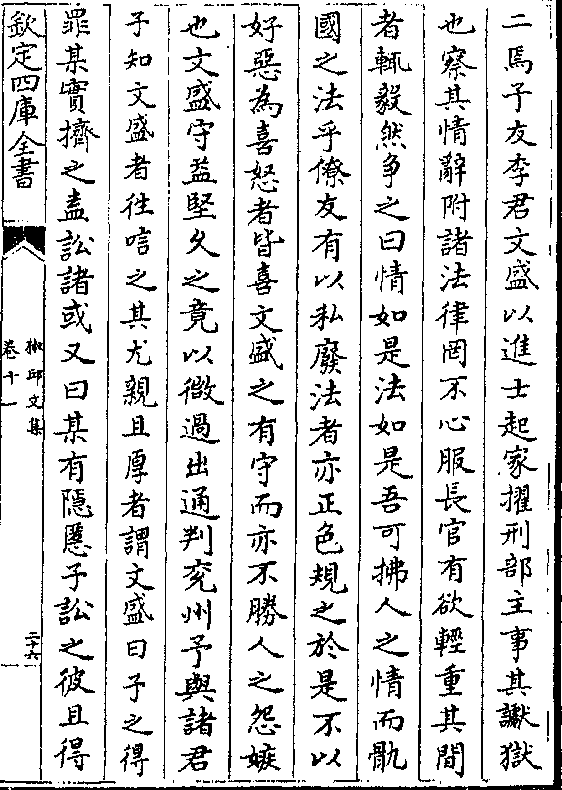 二焉予友李君文盛以進士起家擢刑部主事其讞獄
也察其情辭附諸法律罔不心服長官有欲輕重其間
者輒毅然争之曰情如是法如是吾可拂人之情而骫
國之法乎僚友有以私廢法者亦正色規之於是不以
好惡為喜怒者皆喜文盛之有守而亦不勝人之怨嫉
也文盛守益堅久之竟以微過出通判兖州予與諸君
子知文盛者往唁之其尤親且厚者謂文盛曰子之得
罪某實擠之盍訟諸或又曰某有隱慝子訟之彼且得
欽定四庫全書
卷十一
文集
二十六